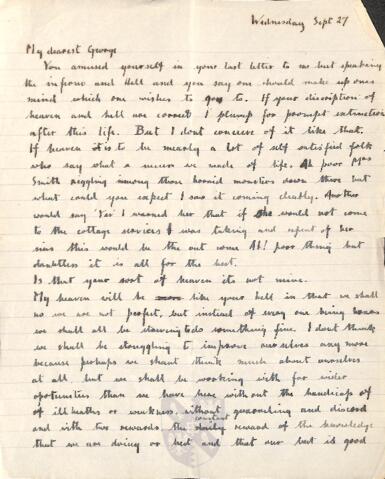 Wednesday Sept 27
My dearest George
You amused yourself in your last letter to me but speaking
the inferno and Hell and you say one should make up ones
mind which one wishes to go to. If your discription of
heaven and hell are correct I plump for prompt extinction
after this life. But I dont conceive of it like that.
If heaven is to be mearly a lot of self satisfied folk
who say what a success we made of life. Ah poor Mrs
Smith among those horrid monsters down there but
what could you expect I saw it coming clearly. Another
would say 'Yes' I warned her that if she would not come
to the cottage services I was taking and repent of her
sins this would be the out come Ah! poor thing but
doubtless it is all for the best.
Is that your sort of heaven its not mine.
My heaven will be like your hell in that we shall
no we are not perfect, but instead of every one being
we shall all be to do something fine. I dont think
we shall be struggling to improve ourselves any more
because perhaps we shant think much about ourselves
at all but we shall be working with far wider
oportunities than we have here without the handicaps of
of ill healths or weakness. without quarreling and discord
and with two rewards the constant daily reward of the knowledge
that we are doing or best and that our best is good